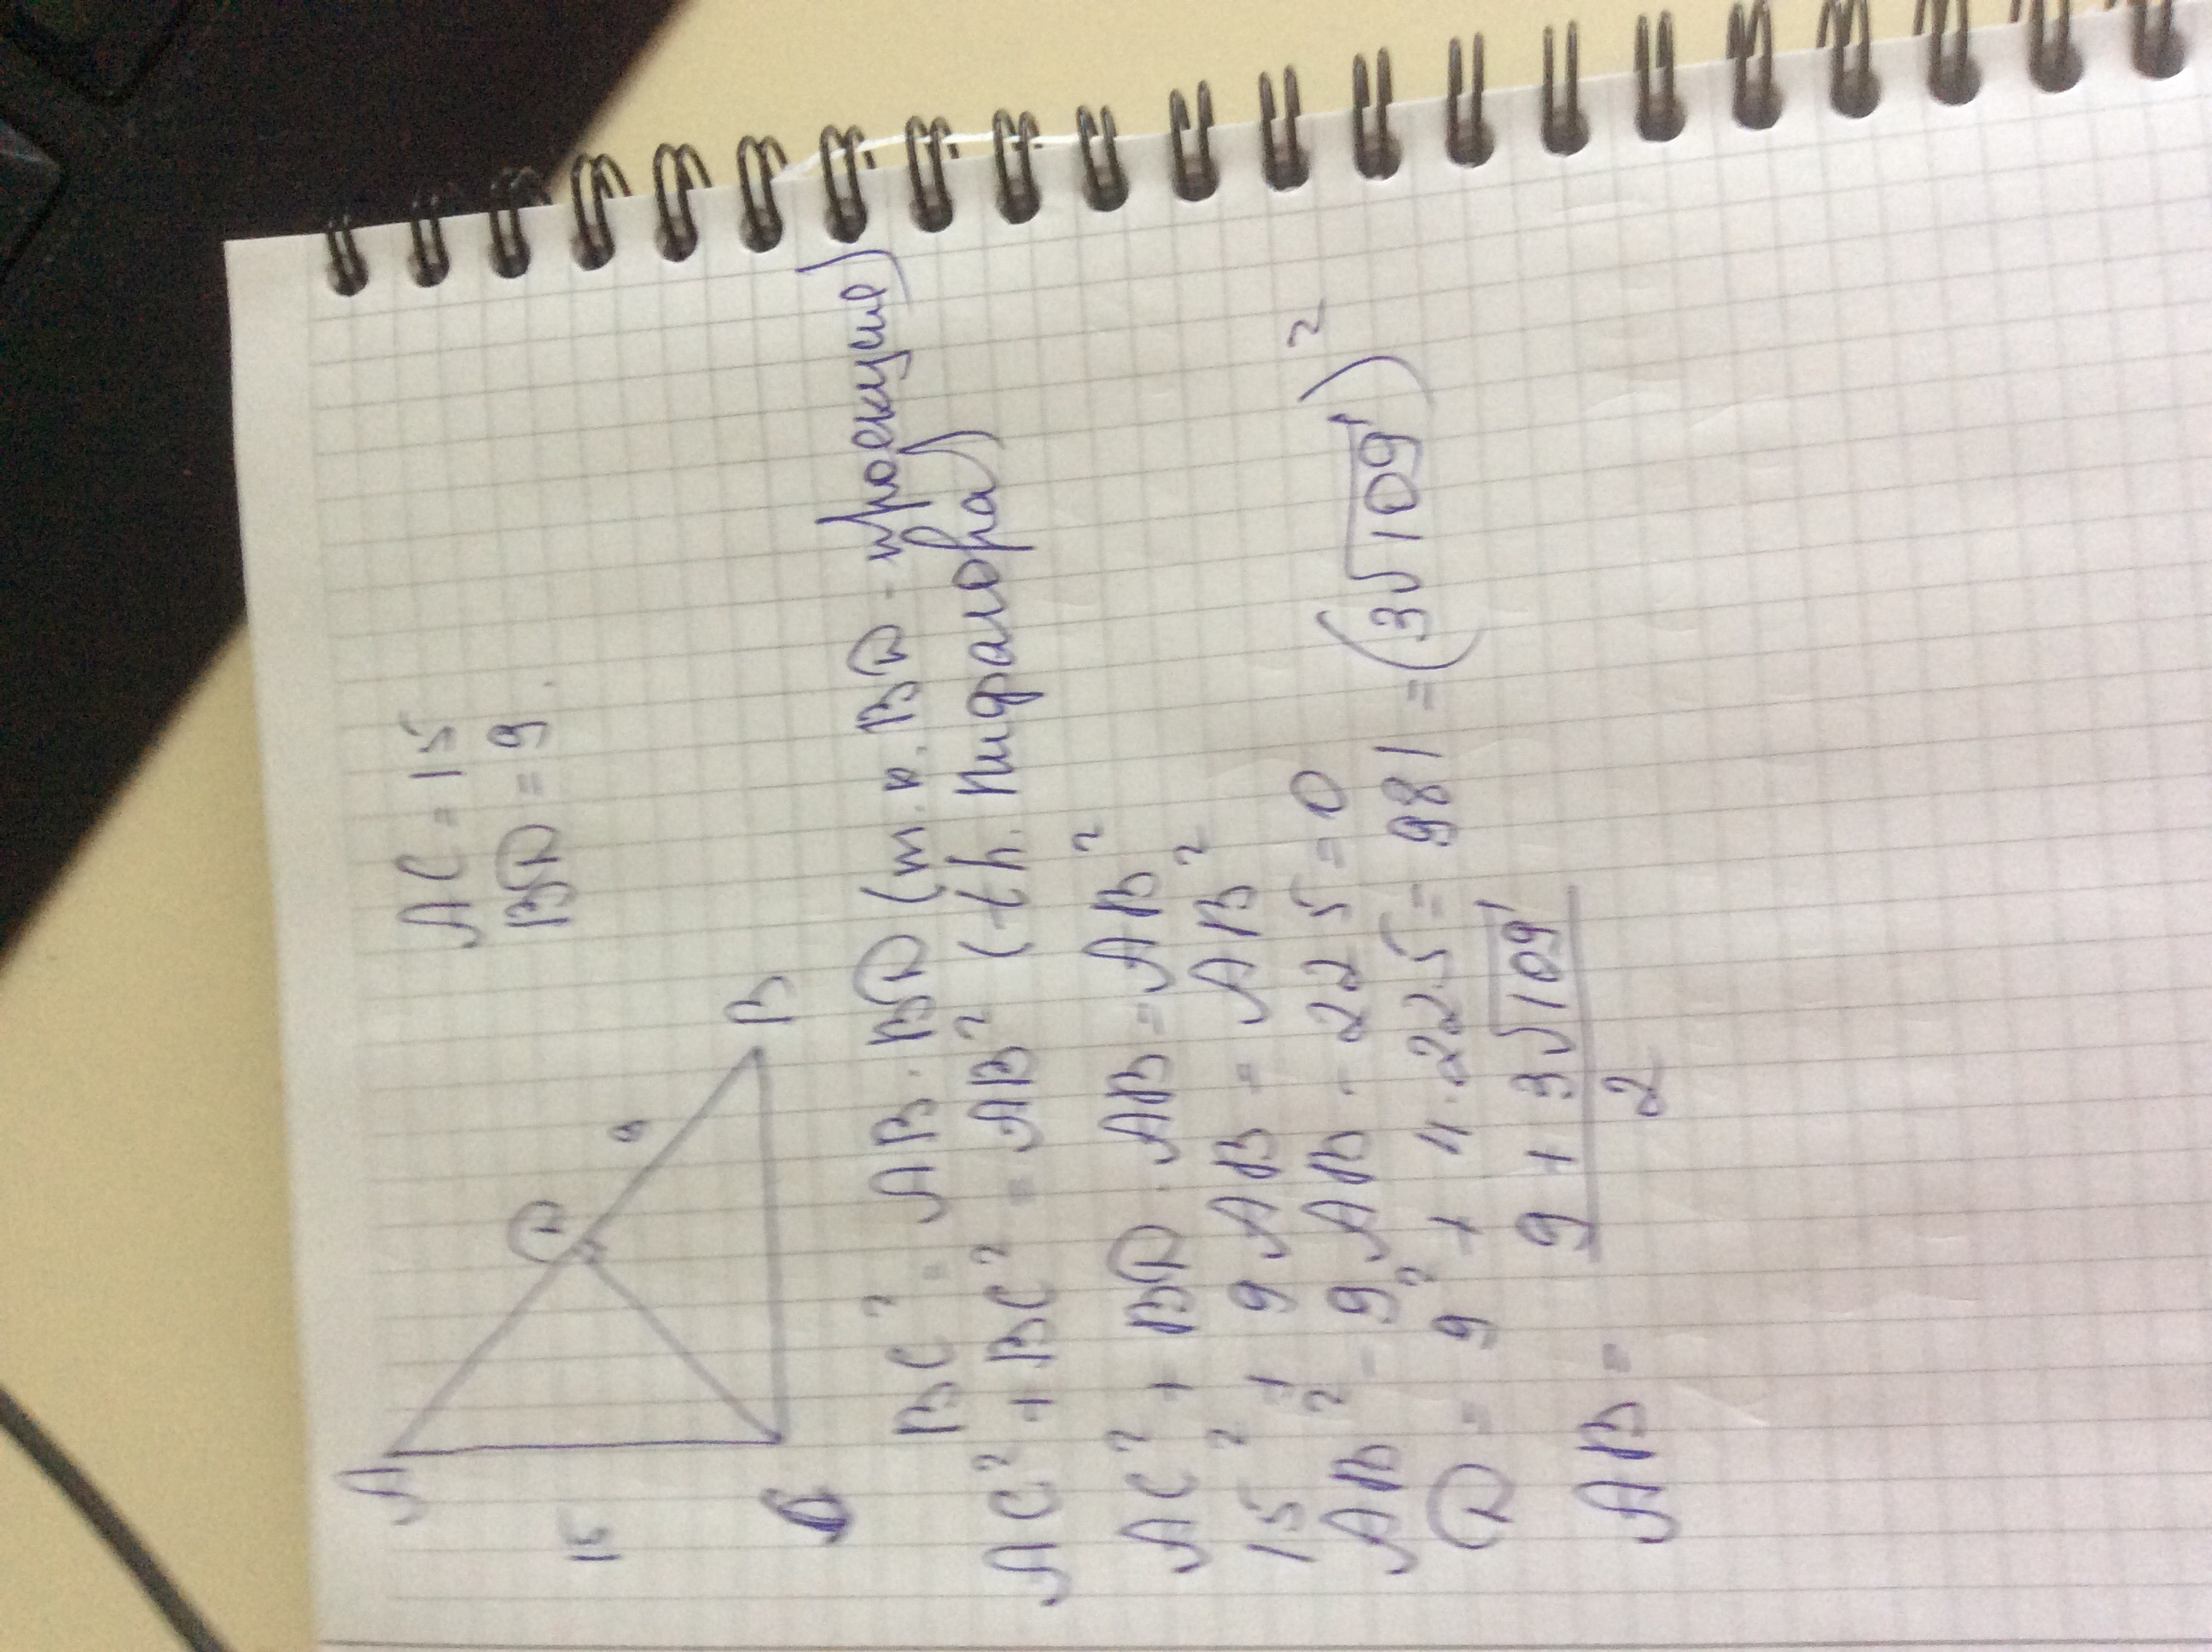 AC = 15
BD = 9.
A
D
9
15
C
B
BC² = AB · BD (т.к. BD - проекция)
AC² + BC² = AB² (th. Пифагора)
AC² + BD · AB = AB²
15² + 9AB = AB²
AB² - 9AB - 225 = 0
D = 9² + 4·225 = 981 = (3√109)²
AB = 9 + 3√109
2